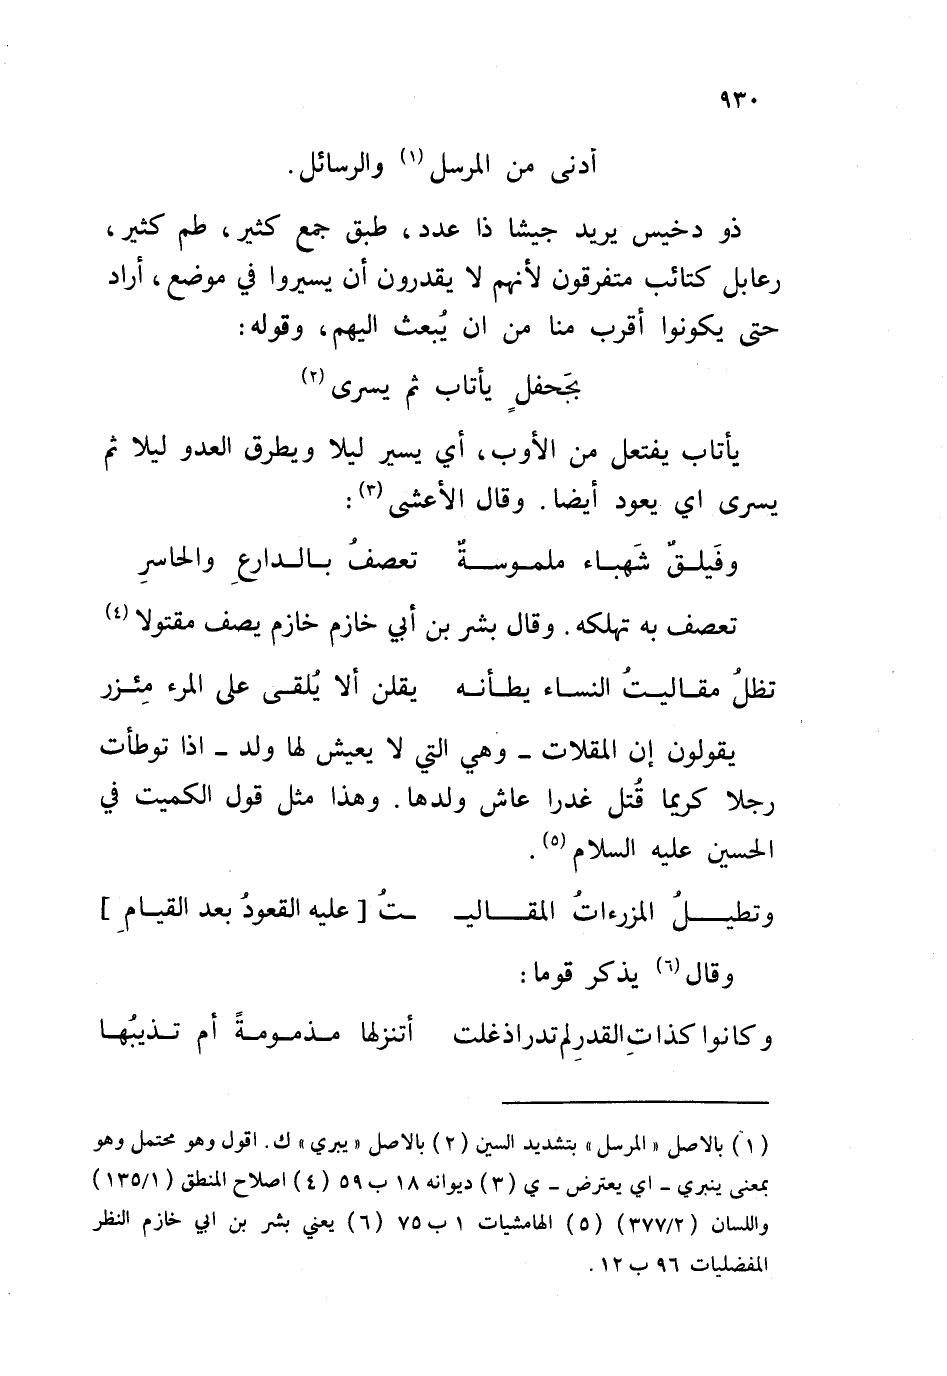 ٩٣٠
أدنى من المرسل (١) والرسائل.
ذو دخيس يريد جيشا ذا عدد، طبق جمع كثير، طم كثير،
رعابل كتائب متفرقون لأنهم لا يقدرون أن يسيروا في موضع، أراد
حتى يكونوا أقرب منا من ان يُبعث اليهم، وقوله:
بجَحفلٍ يأتاب ثم يسرى (٢)
يأتاب يفتعل من الأوب، أي يسير ليلا ويطرق العدو ليلا ثم
يسرى اي يعود أيضا. وقال الأعشى (٣):
وفَيلقٌ شَهباء ملموسةٌ تعصفُ بالدارعِ والحاسرِ
تعصف به تهلكه. وقال بشر بن أبي خازم خازم يصف مقتولا (٤)
تظلُ مقاليتُ النساء يطأنه يقلن ألا يُلقى على المرء مِئزر
يقولون إن المقلات ـ وهي التي لا يعيش لها ولد ـ اذا توطأت
رجلا كريما قُتل غدرا عاش ولدها. وهذا مثل قول الكميت في
الحسين عليه السلام (٥).
وتطيلُ المزرءاتُ المقاليـ ـتُ [عليه القعودُ بعد القيامِ]
وقال (٦) يذكر قوما:
وكانوا كذاتِ القدرِ لم تدر اذ غلت أتنزلها مذمومةً أم تذيبُها
(١) بالاصل «المرسل» بتشديد السين (٢) بالاصل «يبري» ك. اقول وهو محتمل وهو
بمعنى ينبري ـ اي يعترض ـ ي (٣) ديوانه ١٨ ب ٥٩ (٤) اصلاح المنطق (١٣٥/١)
واللسان (٣٧٧/٢) (٥) الهامشيات ١ ب ٧٥ (٦) يعني بشر بن ابي خازم النظر
المفضليات ٩٦ ب ١٢.